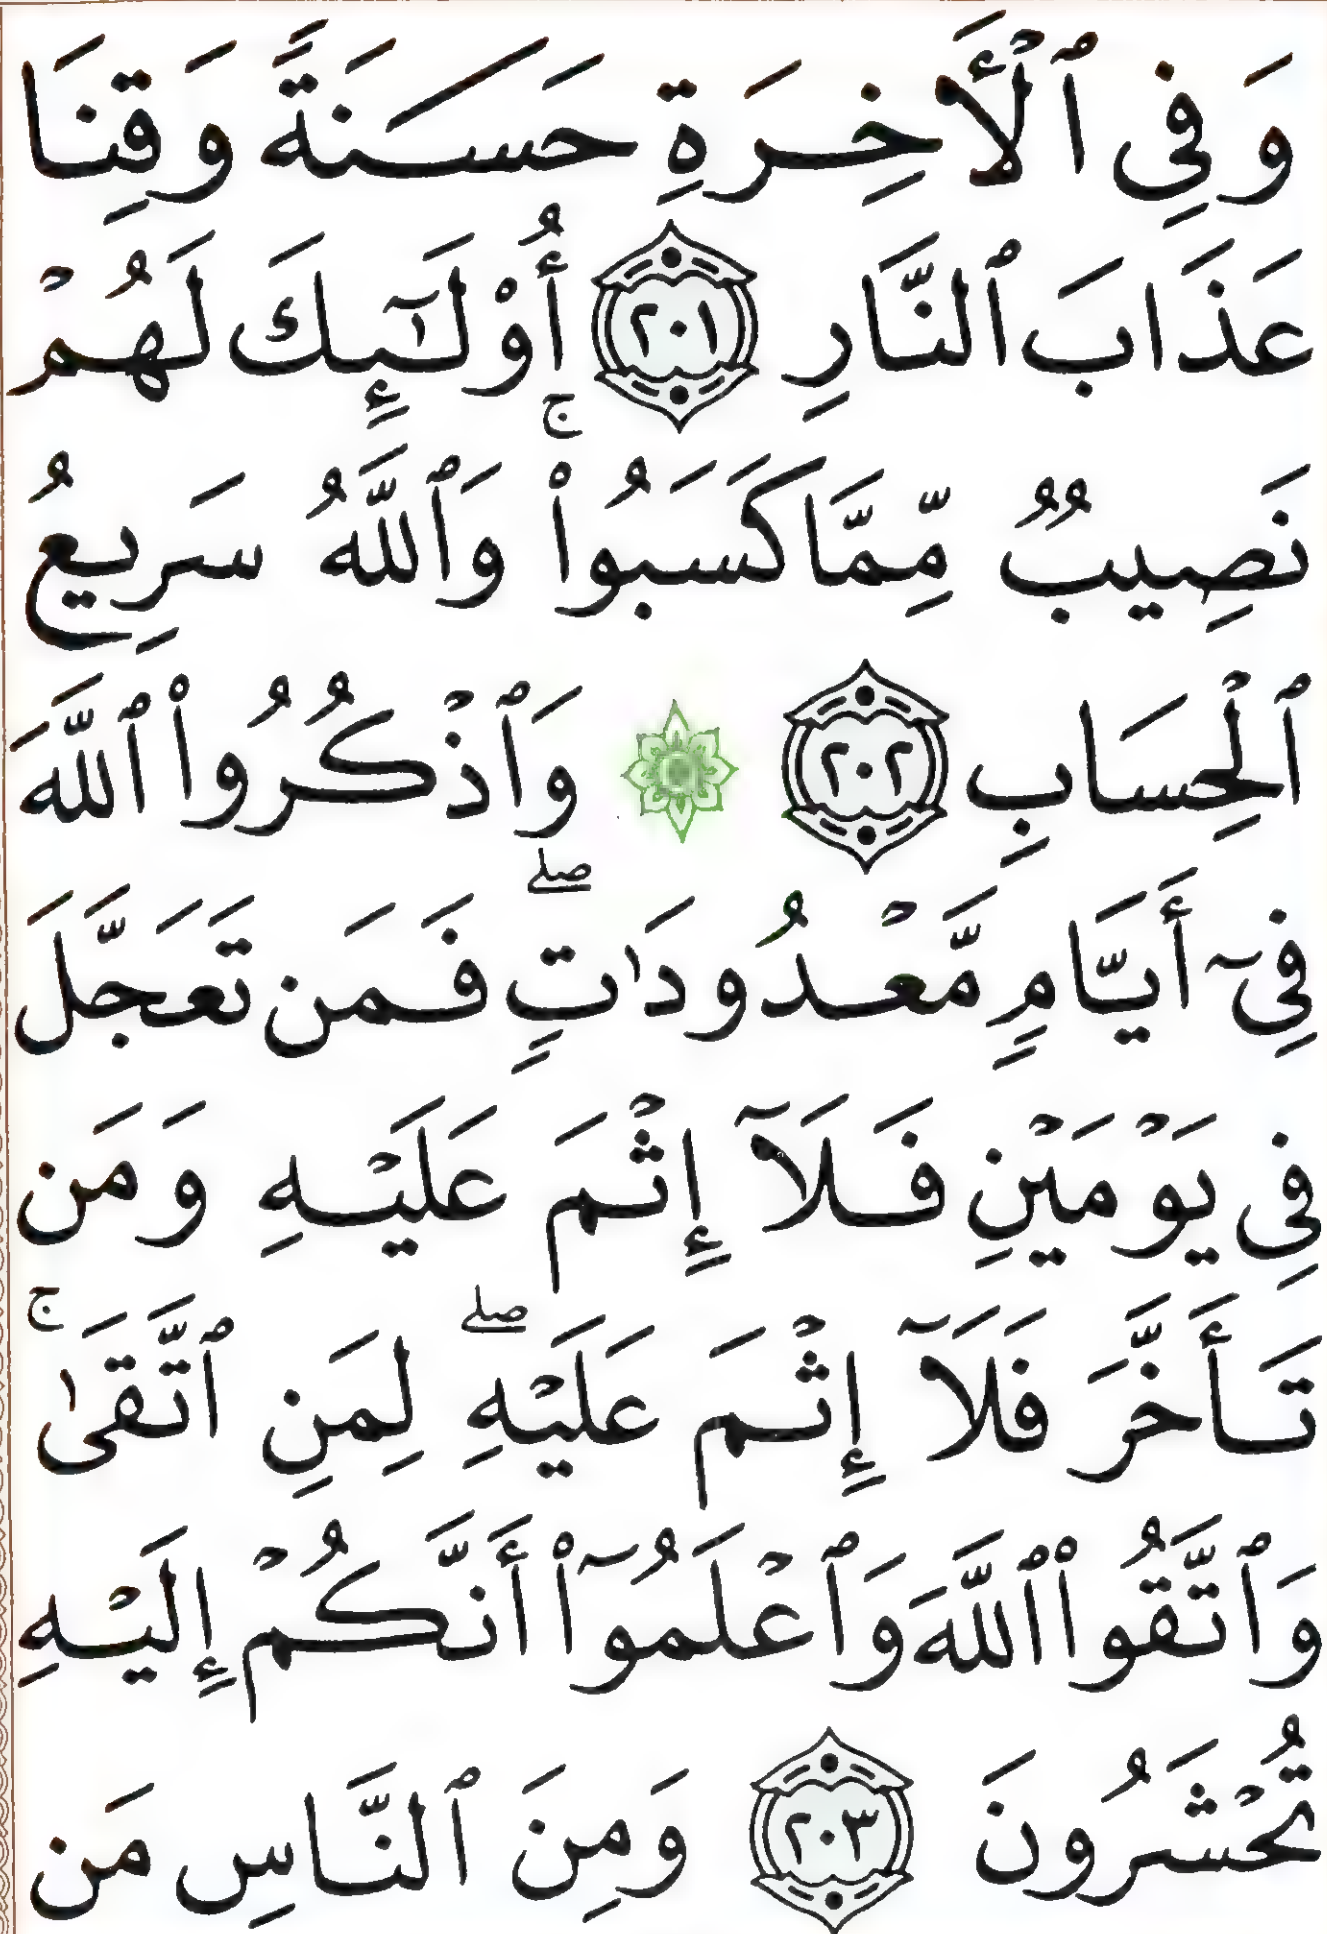 وَفِي ٱلْأَخِرَةِ حَسَنَةً وَقِنَا
عَذَابَ ٱلنَّارِ ٢٠١ أُوْلَٰٓئِكَ لَهُمْ
نَصِيبٌ مِّمَّا كَسَبُواْۚ وَٱللَّهُ سَرِيعُ
ٱلْحِسَابِ ٢٠٢ ۞ وَٱذْكُرُواْ ٱللَّهَ
فِيٓ أَيَّامٍ مَّعْدُودَٰتٍۖ فَمَن تَعَجَّلَ
فِي يَوْمَيْنِ فَلَآ إِثْمَ عَلَيْهِ وَمَن
تَأَخَّرَ فَلَآ إِثْمَ عَلَيْهِۖ لِمَنِ ٱتَّقَىٰۚ
وَٱتَّقُواْ ٱللَّهَ وَٱعْلَمُوٓاْ أَنَّكُمْ إِلَيْهِ
تُحْشَرُونَ ٢٠٣ وَمِنَ ٱلنَّاسِ مَن